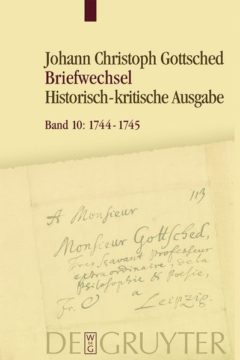 Johann Christoph Gottsched
Briefwechsel
Historisch-kritische Ausgabe
Band 10: 1744-1745
113
A Monsieur
Monsieur Gottsched,
Tres savant Professeur
extraordinaire, de la
Philosophie & Poesie,
Fr.
a
Leipzig.
DE GRUYTER
W
DE
G